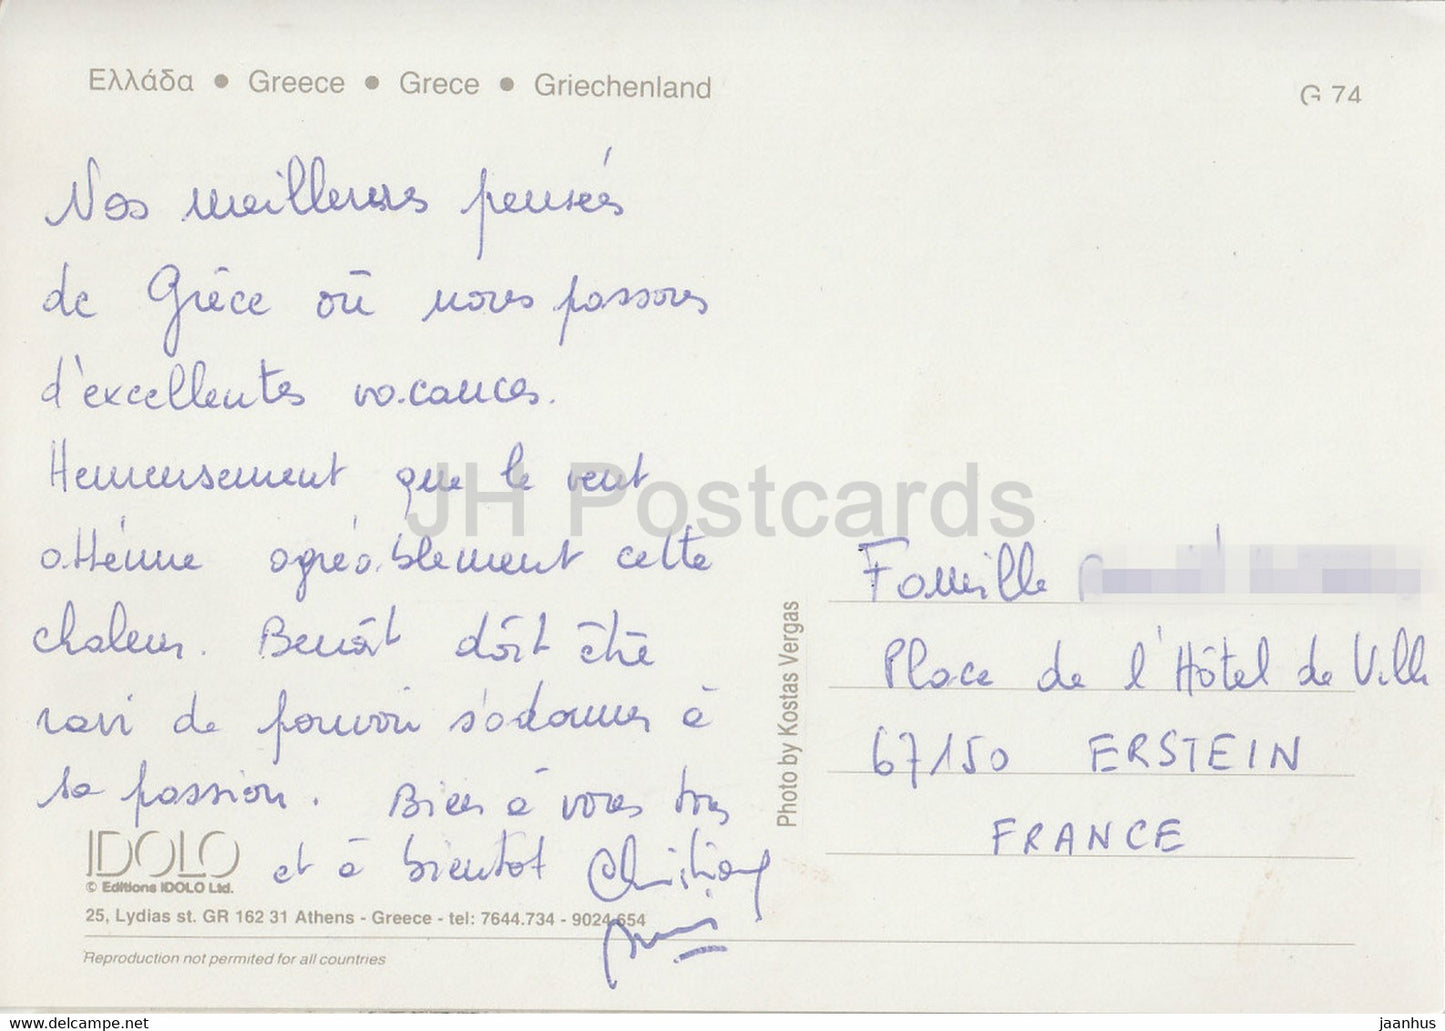 Ελλάδα • Greece • Grece • Griechenland
G 74
Nos meilleures pensées
de Grèce où nous passons
d'excellentes vacances.
Heureusement que le vent
atténue agréablement cette
chaleur. Benoît doit être
ravi de pouvoir s'adonner à
sa passion. Bien à vous tous
et à bientôt Christiane
JH Postcards
Photo by Kostas Vergas
Famille
Place de l'Hôtel de Ville
67150 ERSTEIN
FRANCE
IDOLO
© Editions IDOLO Ltd.
25, Lydias st. GR 162 31 Athens - Greece - tel: 7644.734 - 9024.654
Reproduction not permited for all countries
www.delcampe.net
jaanhus